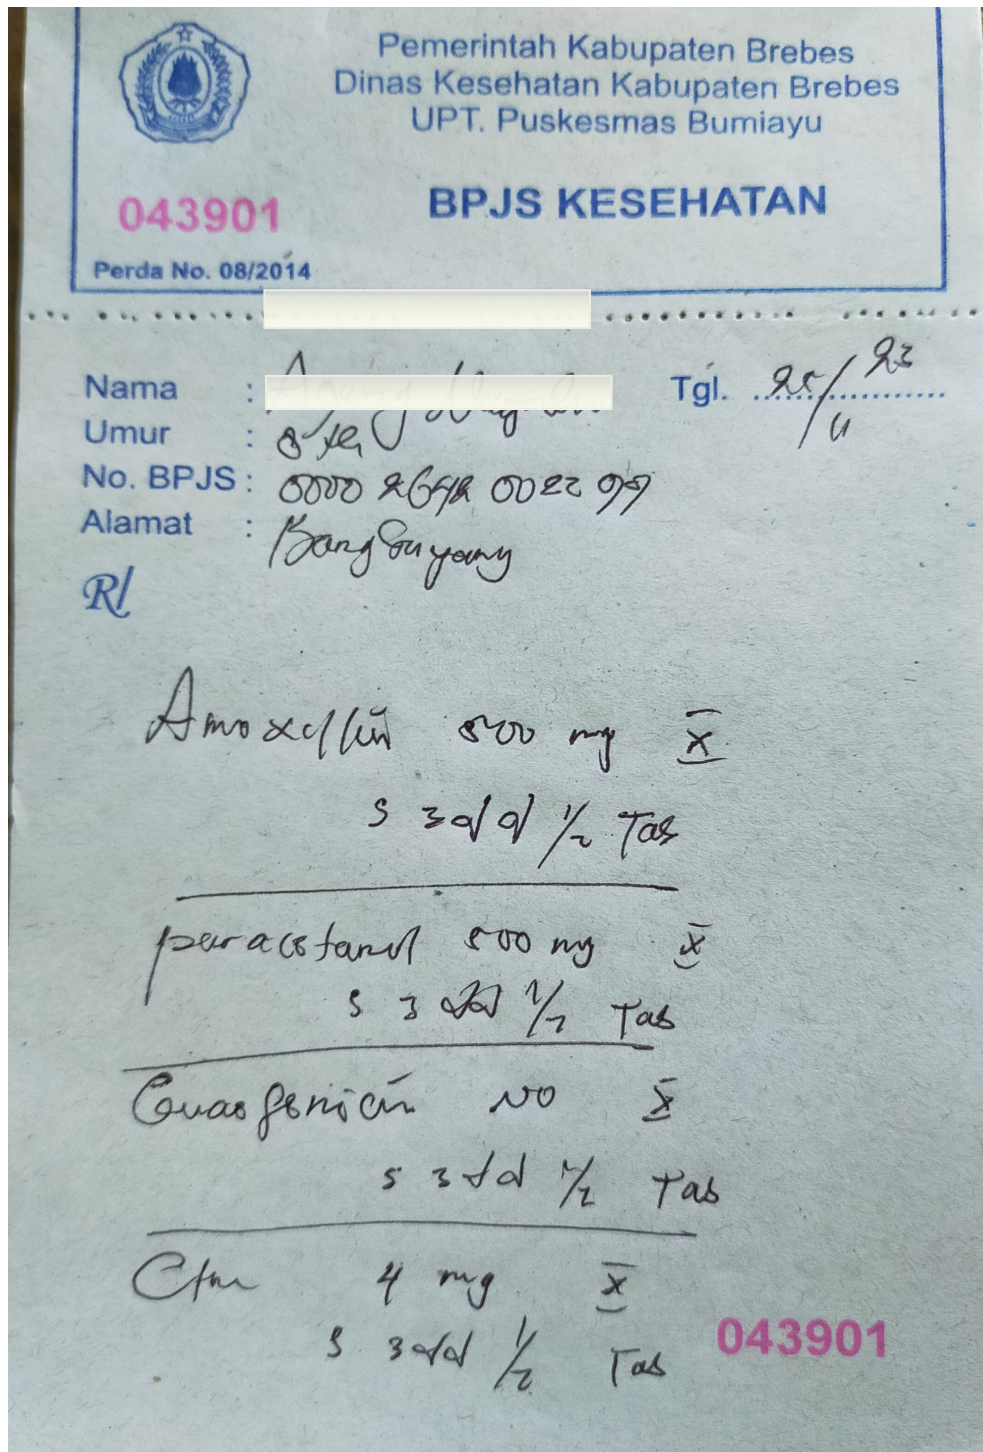 Pemerintah Kabupaten Brebes
Dinas Kesehatan Kabupaten Brebes
UPT. Puskesmas Bumiayu
BPJS KESEHATAN
043901
Perda No. 08/2014
Nama :
Tgl. 25/11 23
Umur : 8 th
No. BPJS : 0000
Alamat :
R/
Amoxcllin 500 mg X
S 3dd 1/2 Tab
paracetamol 500 mg X
S 3dd 1/2 Tab
No X
S 3dd 1/2 Tab
Ctm 4 mg X
S 3dd 1/2 Tab
043901